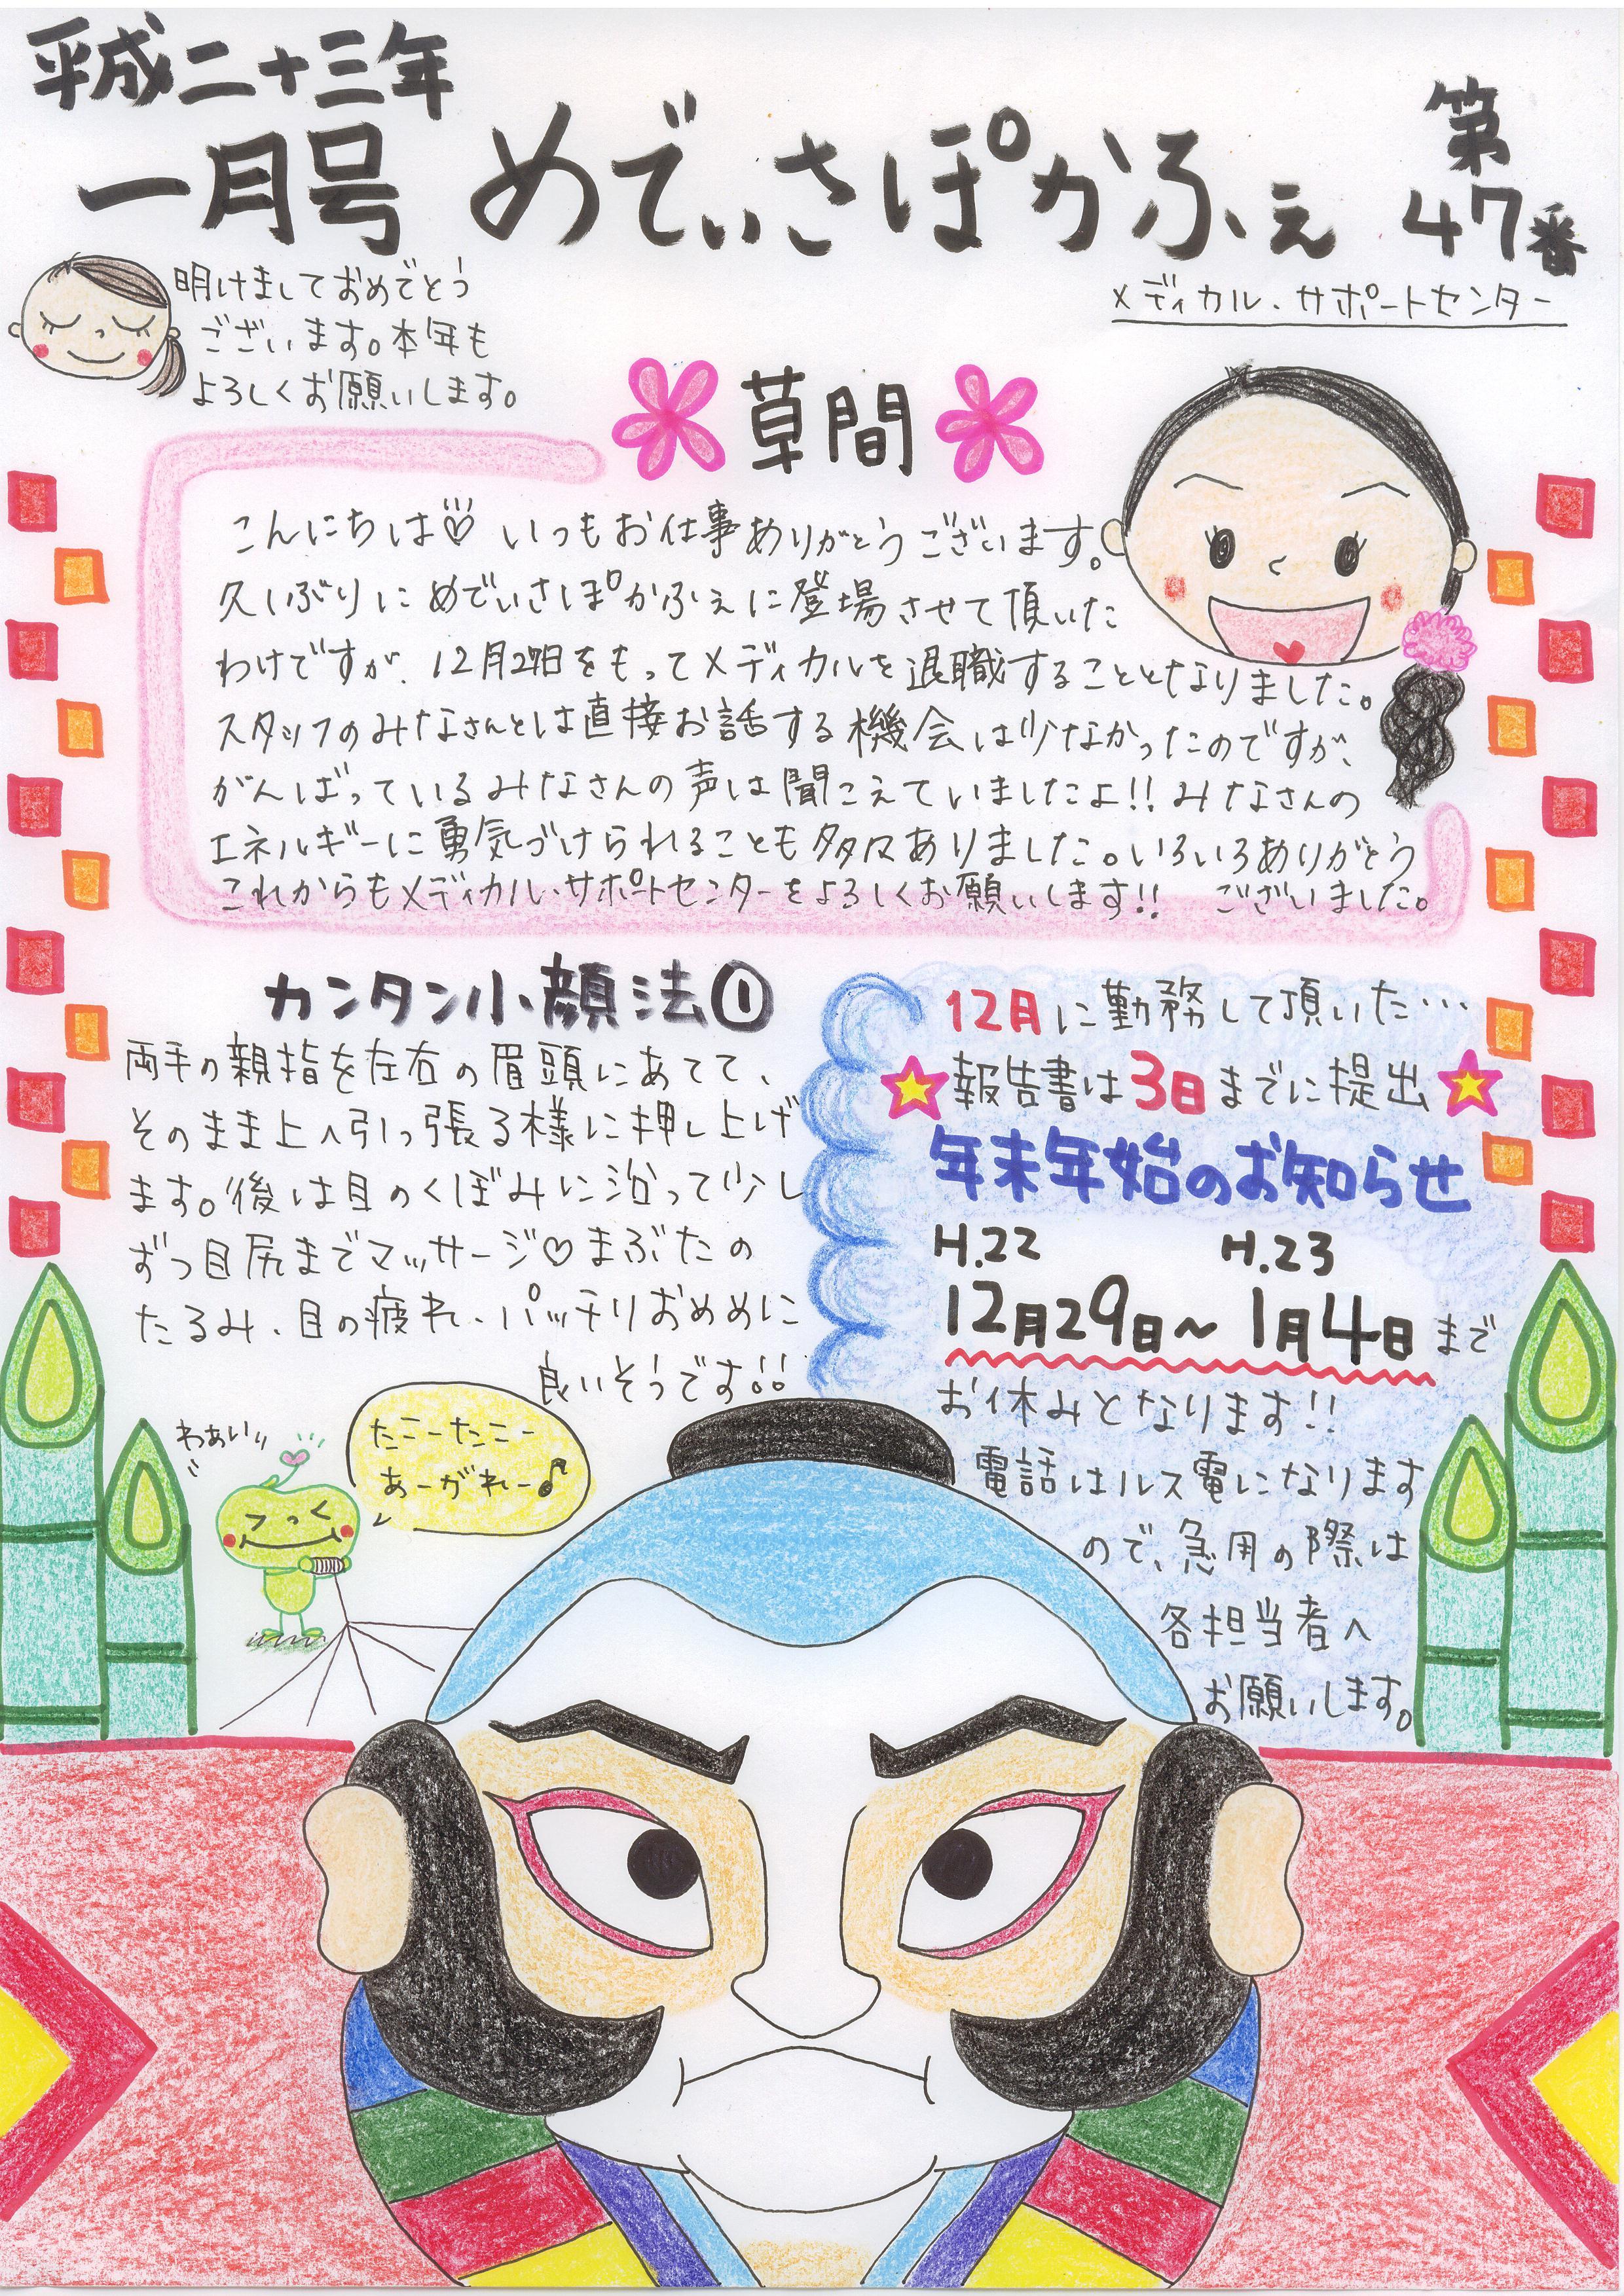 平成二十三年
一月号 めでぃさぽかふぇ 第47番
メディカル・サポートセンター
明けましておめでとう
ございます。本年も
よろしくお願いします。
草間
こんにちは♡ いつもお仕事ありがとうございます。
久しぶりにめでぃさぽかふぇに登場させて頂いた
わけですが、12月27日をもってメディカルを退職することとなりました。
スタッフのみなさんとは直接お話する機会は少なかったのですが、
がんばっているみなさんの声は聞こえていましたよ!!みなさんの
エネルギーに勇気づけられることも多々ありました。いろいろありがとう
ございました。
これからもメディカル・サポートセンターをよろしくお願いします!!
カンタン小顔法①
両手の親指を左右の眉頭にあてて、
そのまま上へ引っ張る様に押し上げ
ます。後は目のくぼみに沿って少し
ずつ目尻までマッサージ♡まぶたの
たるみ、目の疲れ、パッチリおめめに
良いそうです!!
12月に勤務して頂いた…
★報告書は3日までに提出★
年末年始のお知らせ
H.22 H.23
12月29日〜1月4日まで
お休みとなります!!
電話はルス電になります
ので、急用の際は
各担当者へ
お願いします。
わぁい!!
たこーたこー
あーがれー♪